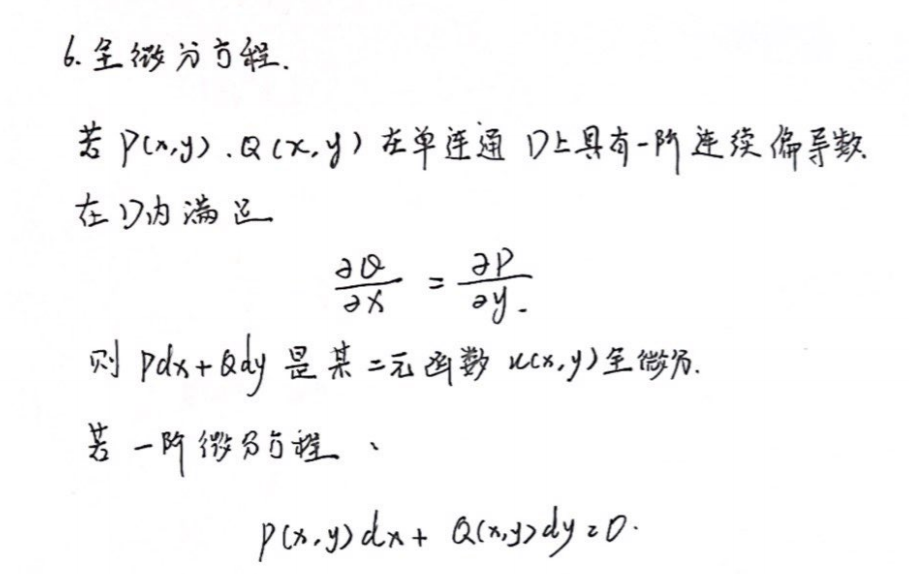 6. 全微分方程.
若 P(x,y). Q(x,y) 在单连通 D上具有一阶连续偏导数
在D内满足
∂Q/∂x = ∂P/∂y.
则 Pdx+Qdy 是某二元函数 u(x,y)全微分.
若一阶微分方程、
P(x,y)dx + Q(x,y)dy=0.